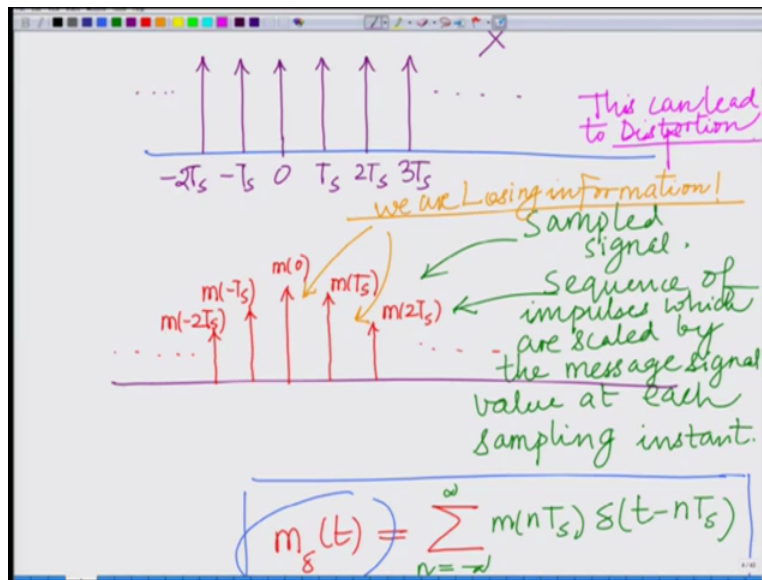 X
This can lead
to Distortion.
-2Ts -Ts 0 Ts 2Ts 3Ts
we are Losing information!
Sampled
signal.
m(-2Ts) m(-Ts) m(0) m(Ts) m(2Ts)
Sequence of
impulses which
are scaled by
the message signal
value at each
sampling instant.
mδ(t) = ∑ m(nTs) δ(t-nTs)
∞
n=-∞